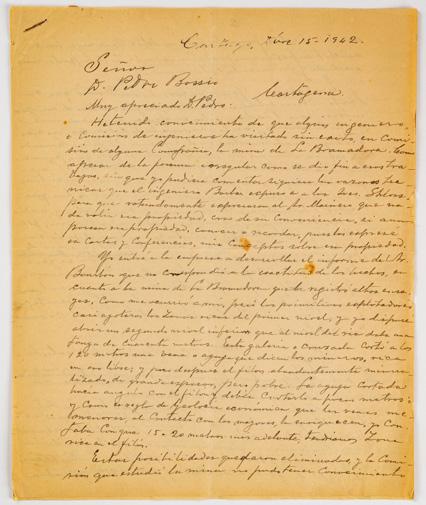 Cartago, Dbre 15-1942.
Señor
D. Pedro Bossio
Cartagena
Muy apreciado D. Pedro:
He tenido conocimiento de que algun ingeniero
o Comisión de ingenieros ha visitado en Comi-
sión de alguna Compañía, la mina de La Bramadora. Como
apesar de la forma irregular como se dió fin a esos tra-
bajos, sin que yo pudiera conocer siquiera las razones tec-
nicas que el ingeniero expuso a los Sres.
para que rotundamente expresaron al Sr. que no
de valia esa propiedad, creo de su conveniencia, si aun
poseen esa propiedad, conocer o recordar, pues los expresé
en Cartas y Conferencias, mis Conceptos sobre esa propiedad.
Yo entré a la empresa a desarrollar el informe del Sr.
que no correspondió a la realidad de los hechos, en
cuanto a la mina de La Bramadora que le registró altos ensa-
yes, Como me ocurrió a mi, pero los primitivos explotadores
casi agotaron las zonas ricas del primer nivel, y yo dispuse
abrir un segundo nivel inferior que al nivel del rio daba una
de cincuenta metros. Esta galeria o Cruzada Cortó a los
120 metros una vena o aguja que dicen los mineros, rica
en oro libre; y poco despues el filon abundantemente minera-
lizado, de grande espesor, pero pobre. La aguja Cortada
hacia angulo con el filon y debia Cortarlo a pocos metros:
y Como es regla de Geologia economica que las venas me-
nores al Contacto con las mayores, la enriquecen, yo Con-
taba Con que 15 a 20 metros mas adelante, tendriamos Zona
rica en el filon.
Estas posibilidades quedaron eliminadas, y la Comi-
sión que estudió la mina no pudo tener Conocimiento